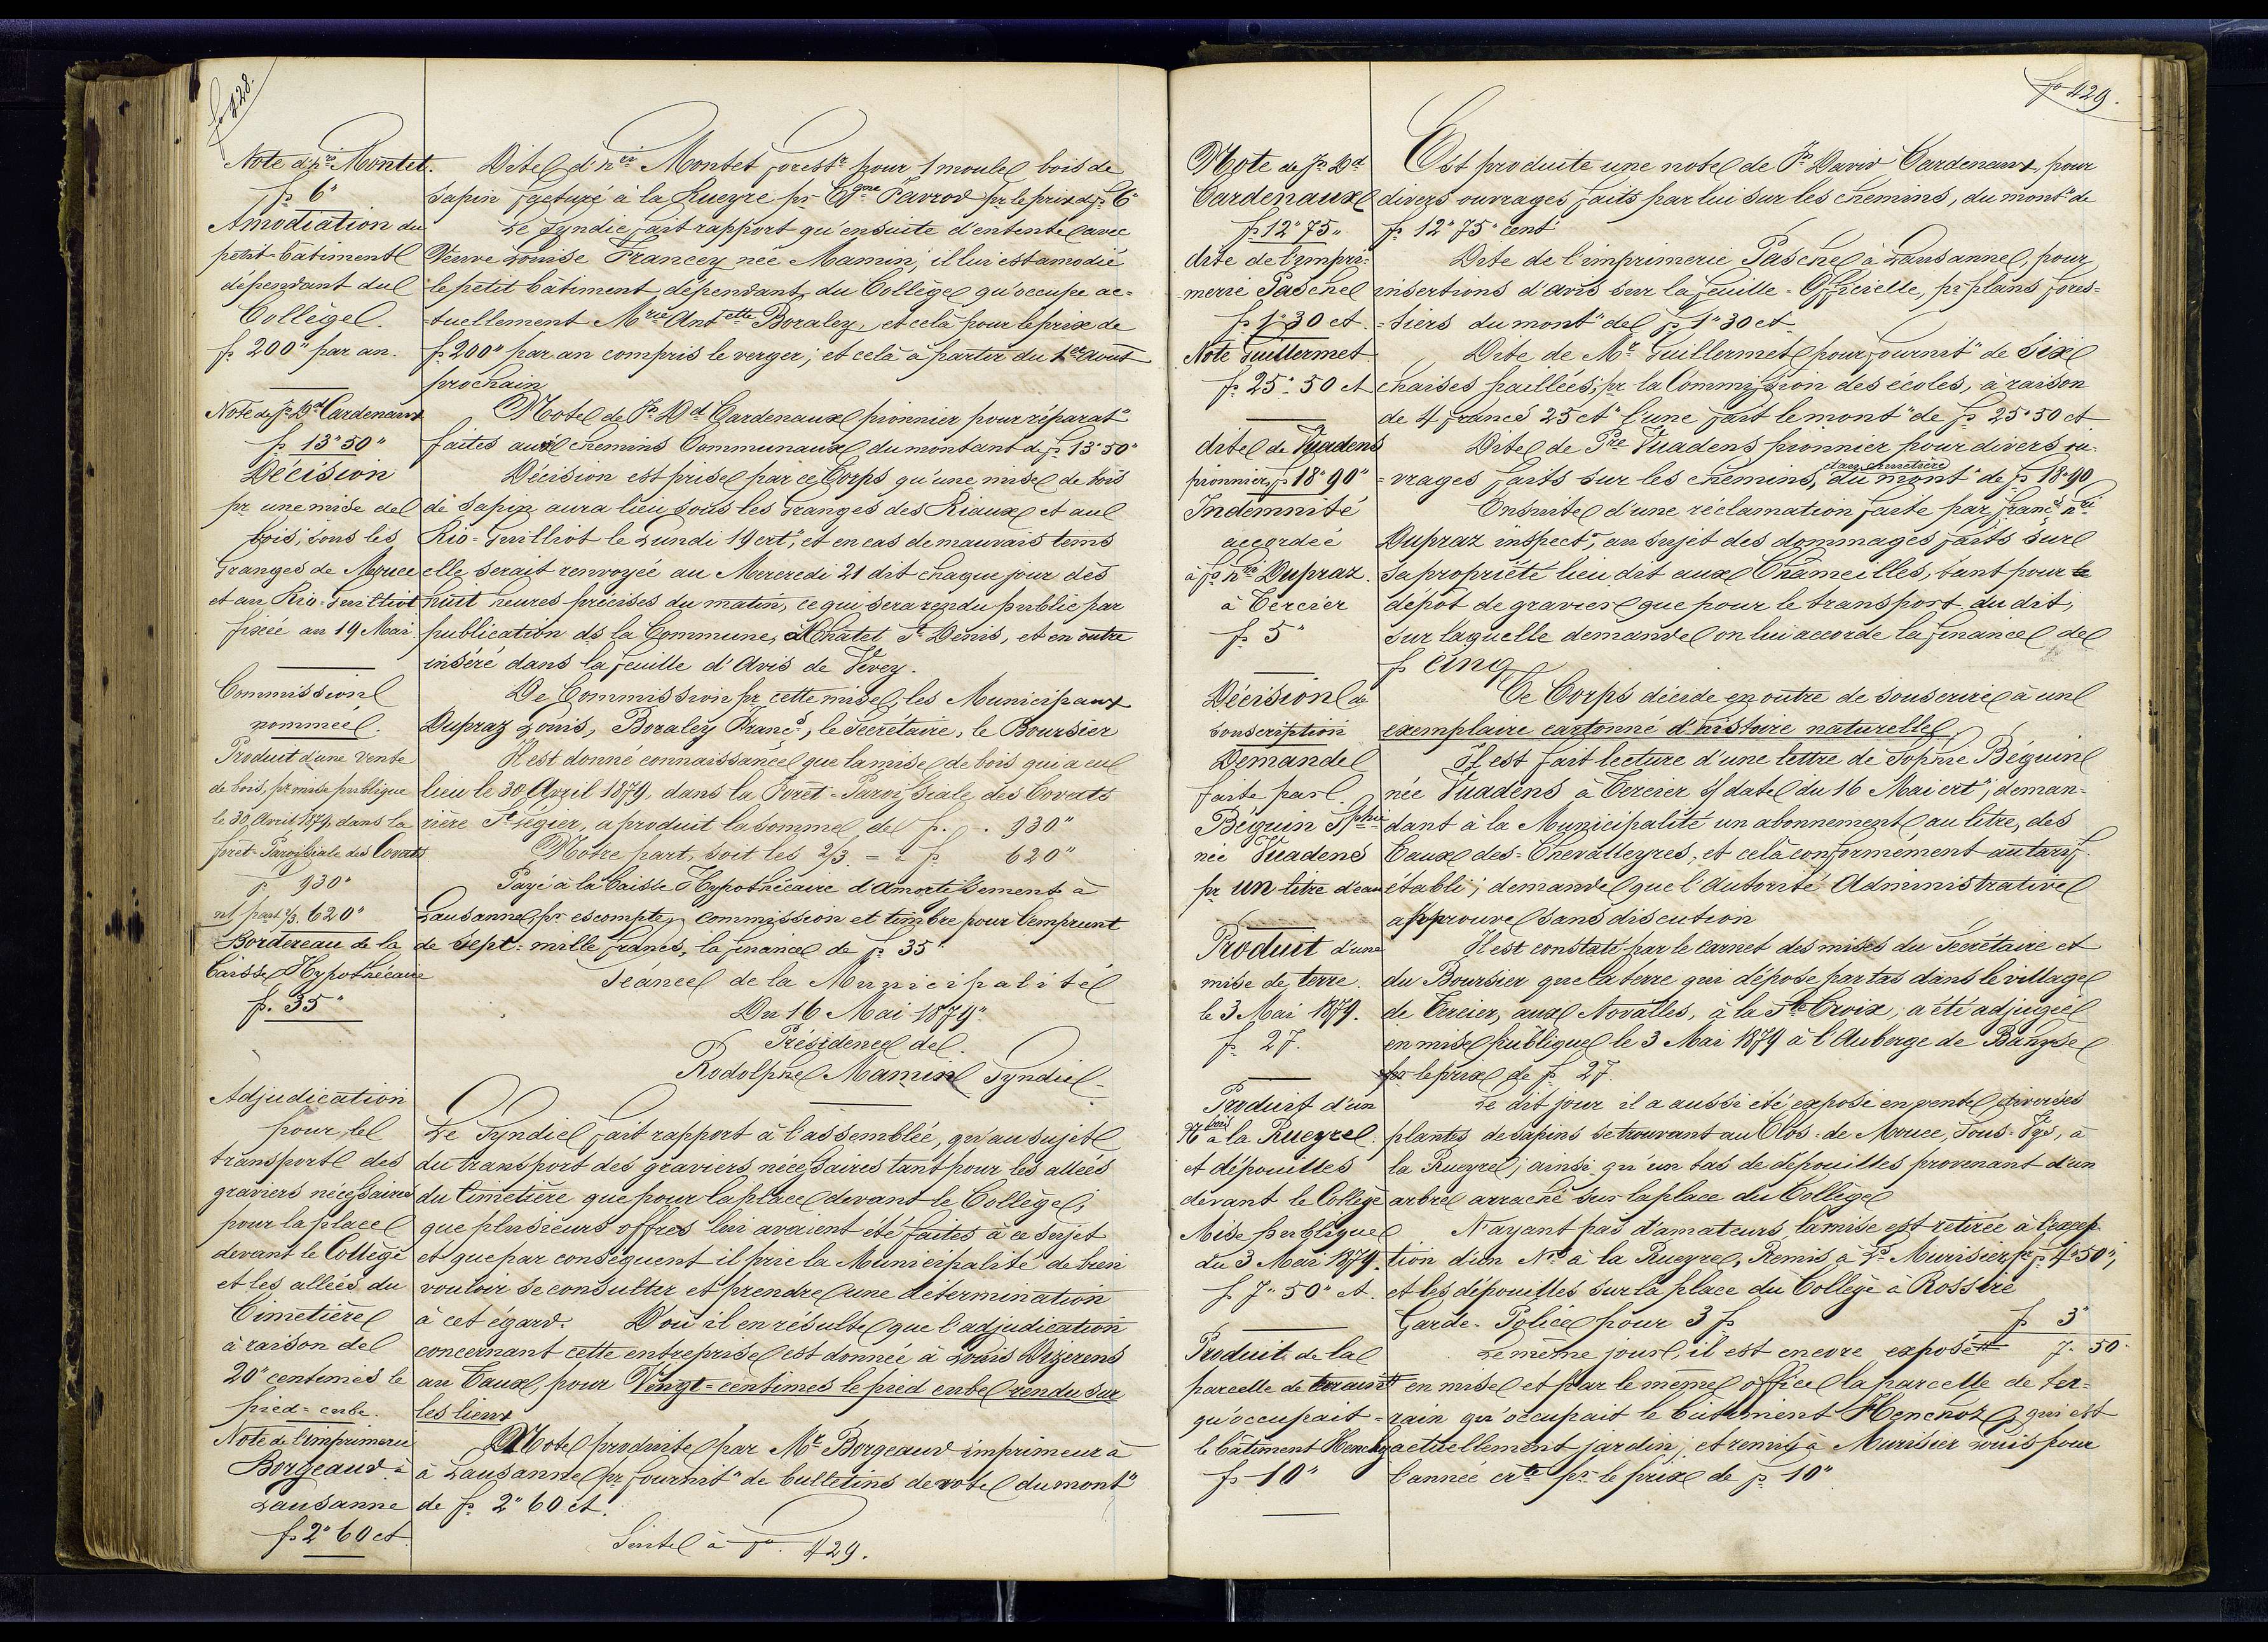 fo 428.
Note d'hri Montet.
fr 6"
Amodiation du
petit-bâtiment
dépendant du
Collège.
fr. 200" par an.
Note de Js Dd Cardenaux
fr 13"50"
Décision
pr une mise de
bois, sous les
Granges de Mouce
et au Rio-Guilliot
fixée au 19 Mai.
Commission
nommée.
Produit d'une vente
de bois, pr mise publique
le 30 Avril 1879, dans la
forêt-Paroissiale des Covats
fr 930"
nt part 2/3. 620"
Bordereau de la
Caisse Hypothécaire
fr. 35"
Adjudication
pour le
transport des
graviers nécessaires
pour la place
devant le Collège
et les allées du
Cimetière
à raison de
20" centimes le
pied-cube.
Note de l'imprimerie
Borgeaud à
Lausanne
fr 2"60 ct
Dite d'hri Montet forestr pour 1 moule bois de
sapin facturé à la Rueyre pr Favrod pr le prix de fr 6"
Le Syndic fait rapport qu'ensuite d'entente avec
Veuve Louise Francey née Mamin, il lui est amodié
le petit bâtiment dépendant du Collège qu'occupe ac=
=tuellement Mrie Antette Boraley, et celà pour le prix de
fr 200" par an compris le verger; et celà à parter du 1er Août
prochain
Note de Js Dd Cardenaux pionnier pour réparat"
faites aux chemins Communaux du montant de fr 13"50"
Décision est prise par ce Corps qu'une mise de bois
de sapin aura lieu sous les Granges des Riaux et au
Rio-Guilliot le Lundi 19 crt", et en cas de mauvais tems
elle serait renvoyée au Mercredi 21 dit chaque jour dès
huit heures précises du matin, ce qui sera rendu public par
publication ds la Commune, à Châtel St Denis, et en outre
inséré dans la feuille d'Avis de Vevey.
De Commission pr cette mise, les Municipaux
Dupraz Louis, Boraley Francs, le Secrétaire, le Boursier
Il est donné connaissance que la mise de bois qui a eu
lieu le 30 Avril 1879, dans la Foret-Paroissiale des Covats
rière St Légier, a produit la somme de fr. . 930"
Notre part, soit les 2/3 = à fr 620"
Payé à la Caisse Hypothécaire d'Amortissement à
Lausanne pr escompte, commission et timbre pour l'emprunt
de sept-mille francs, la finance de fr 35"
Séance de la Municipalité
Du 16 Mai 1879"
Présidence de
Rodolphe Mamin Syndic
Le Syndic fait rapport à l'assemblée, qu'au sujet
du transport des graviers nécessaires tant pour les allées
du Cimetière que pour la place devant le Collège,
que plusieurs offres lui avaient été faites à ce sujet
et que par conséquent il prie la Municipalité de bien
vouloir se consulter et prendre une détermination
à cet égard. D'où il en résulte que l'adjudication
concernant cette entreprise est donnée à Louis Dizerens
au Taux, pour Vingt-centimes le pied cube rendu sur
les lieux
Note produite par Mr Borgeaud imprimeur à
à Lausanne pr fournit" de bulletins de vote du mont"
de fr 2"60 ct.
Suite à fo. 429.
fo 429.
Note de Js Dd
Cardenaux
fr 12"75"
dite de l'impri=
merie Pache
fr 1"30 ct.
Note Guillermet
fr 25"50 ct
dite de Vuadens
pionnier, fr 18"90"
Indemnité
accordée
à fs hri Dupraz
à Tercier
fr 5"
Décision de
souscription
Demande
faite par
Béguin Sphie
née Vuadens
pr un litre d'eau
Produit d'une
mise de terre.
le 3 Mai 1879.
fr 27.
Produit d'un
No bois à la Rueyre.
et dépouilles
devant le Collège
Mise publique
du 3 Mai 1879.
fr 7"50" ct.
Produit de la
parcelle de terrain
qu'occupait
le bâtiment Henchoz
fr 10"
Est produite une note de Js David Cardenaux, pour
divers ouvrages faits par lui sur les chemins, du mont" de
fr 12"75" cent
Dite de l'imprimerie Pache à Lausanne, pour
insertions d'avis sur la feuille-Officielle, pr plans fores=
=tiers du mont" de fr 1"30 ct.
Dite de Mr Guillermet pour fournit" de six
chaises paillées, pr la Commission des écoles, à raison
de 4 francs 25 ct" l'une fait le mont" de fr 25"50 ct
Dite de Pre Vuadens pionnier pour divers ou=
=vrages faits sur les chemins, et au cimetière du mont" de fr 18"90
Ensuite d'une réclamation faite par francs hri
Dupraz inspectr, au sujet des dommages faits sur
sa propriété lieu dit aux Chameilles, tant pour le
dépôt de gravier que pour le transport du dit,
sur laquelle demande on lui accorde la finance de
fr cinq
Ce Corps décide en outre de souscrire à un
exemplaire cartonné d'histoire naturelle
Il est fait lecture d'une lettre de Sophie Béguin
née Vuadens à Tercier s/ date du 16 Mai crt", deman=
dant à la Municipalité un abonnement au litre, des
Eaux des-Chevalleyres, et celà conformément au tarif
établi; demande que l'Autorité Administrative
approuve sans discution
Il est constaté par le carnet des mises du Secrétaire et
du Boursier que la terre qui dépose par tas dans le village
de Tercier, aux Novalles, à la Ste Croix, a été adjugée
en mise publique le 3 Mai 1879 à l'Auberge de Blanyse
pr le prix de fr 27.
Le dit jour il a aussi été exposé en vente diverses
plantes de sapins se trouvant au Clos-de Mouce, Sous-Vys, à
la Rueyre; ainsi qu'un tas de dépouilles provenant d'un
arbre arraché sur la place du Collège
N'ayant pas d'amateurs, la mise est retirée à l'excep
tion d'un No à la Rueyre, Remis à Ls Murisier pr fr 4"50",
et les dépouilles sur la place du Collège à Rossire
Garde-Police pour 3 fr fr 3"
Le même jour, il est encore exposé 7. 50.
en mise et par le même office la parcelle de ter=
=rain qu'occupait le bâtiment Henchoz, qui est
actuellement jardin; et remis à Murisier Louis pour
l'année crte pr le prix de fr 10"